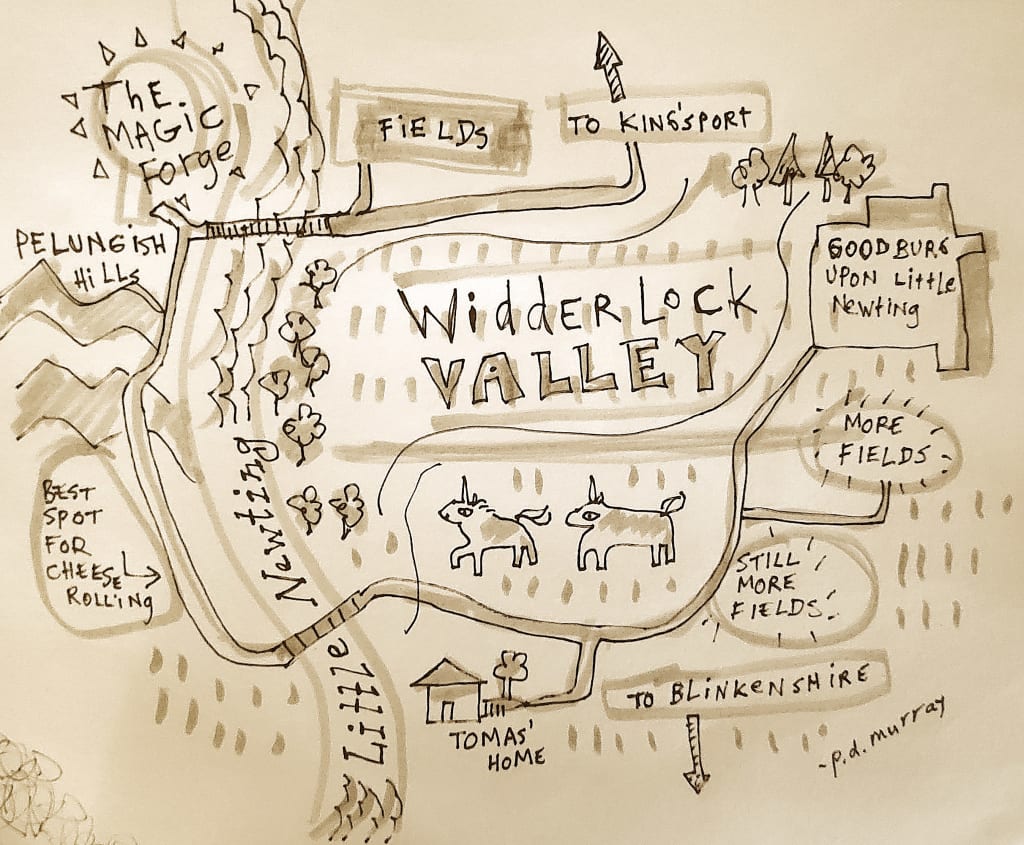 The
MAGIC
Forge
FIELDS
TO KING'SPORT
PELUNGISH
HILLS
GOODBURG
UPON LITTLE
Newting
WIDDERLOCK
VALLEY
MORE
FIELDS
BEST
SPOT
FOR
CHEESE
ROLLING
Little Newting
STILL
MORE
FIELDS
TO BLINKENSHIRE
TOMAS'
HOME
~p.d. murray